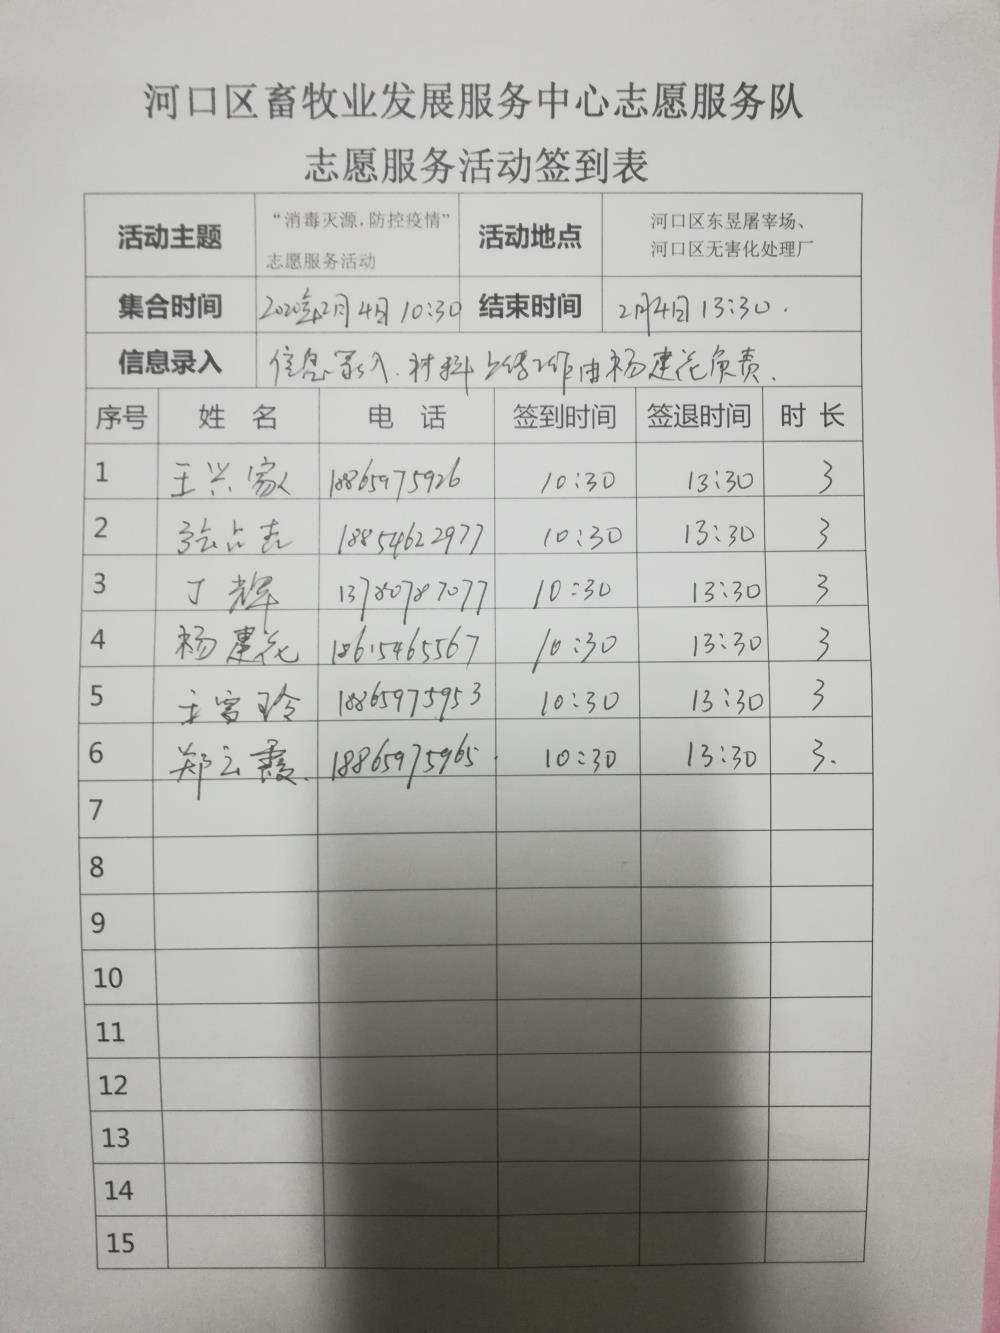 河口区畜牧业发展服务中心志愿服务队
志愿服务活动签到表
活动主题 “消毒灭源,防控疫情” 志愿服务活动 活动地点 河口区东昱屠宰场、 河口区无害化处理厂
集合时间 2020年2月4日 10:30 结束时间 2月4日 13:30.
信息录入 信息录入.材料上传工作由杨建花负责.
序号 姓 名 电 话 签到时间 签退时间 时 长
1 王兴家 18865975926 10:30 13:30 3
2 18854622977 10:30 13:30 3
3 丁辉 13780787077 10:30 13:30 3
4 杨建花 18615465567 10:30 13:30 3
5 王富玲 18865975953 10:30 13:30 3
6 郑云霞. 18865975965. 10:30 13:30 3.
7
8
9
10
11
12
13
14
15